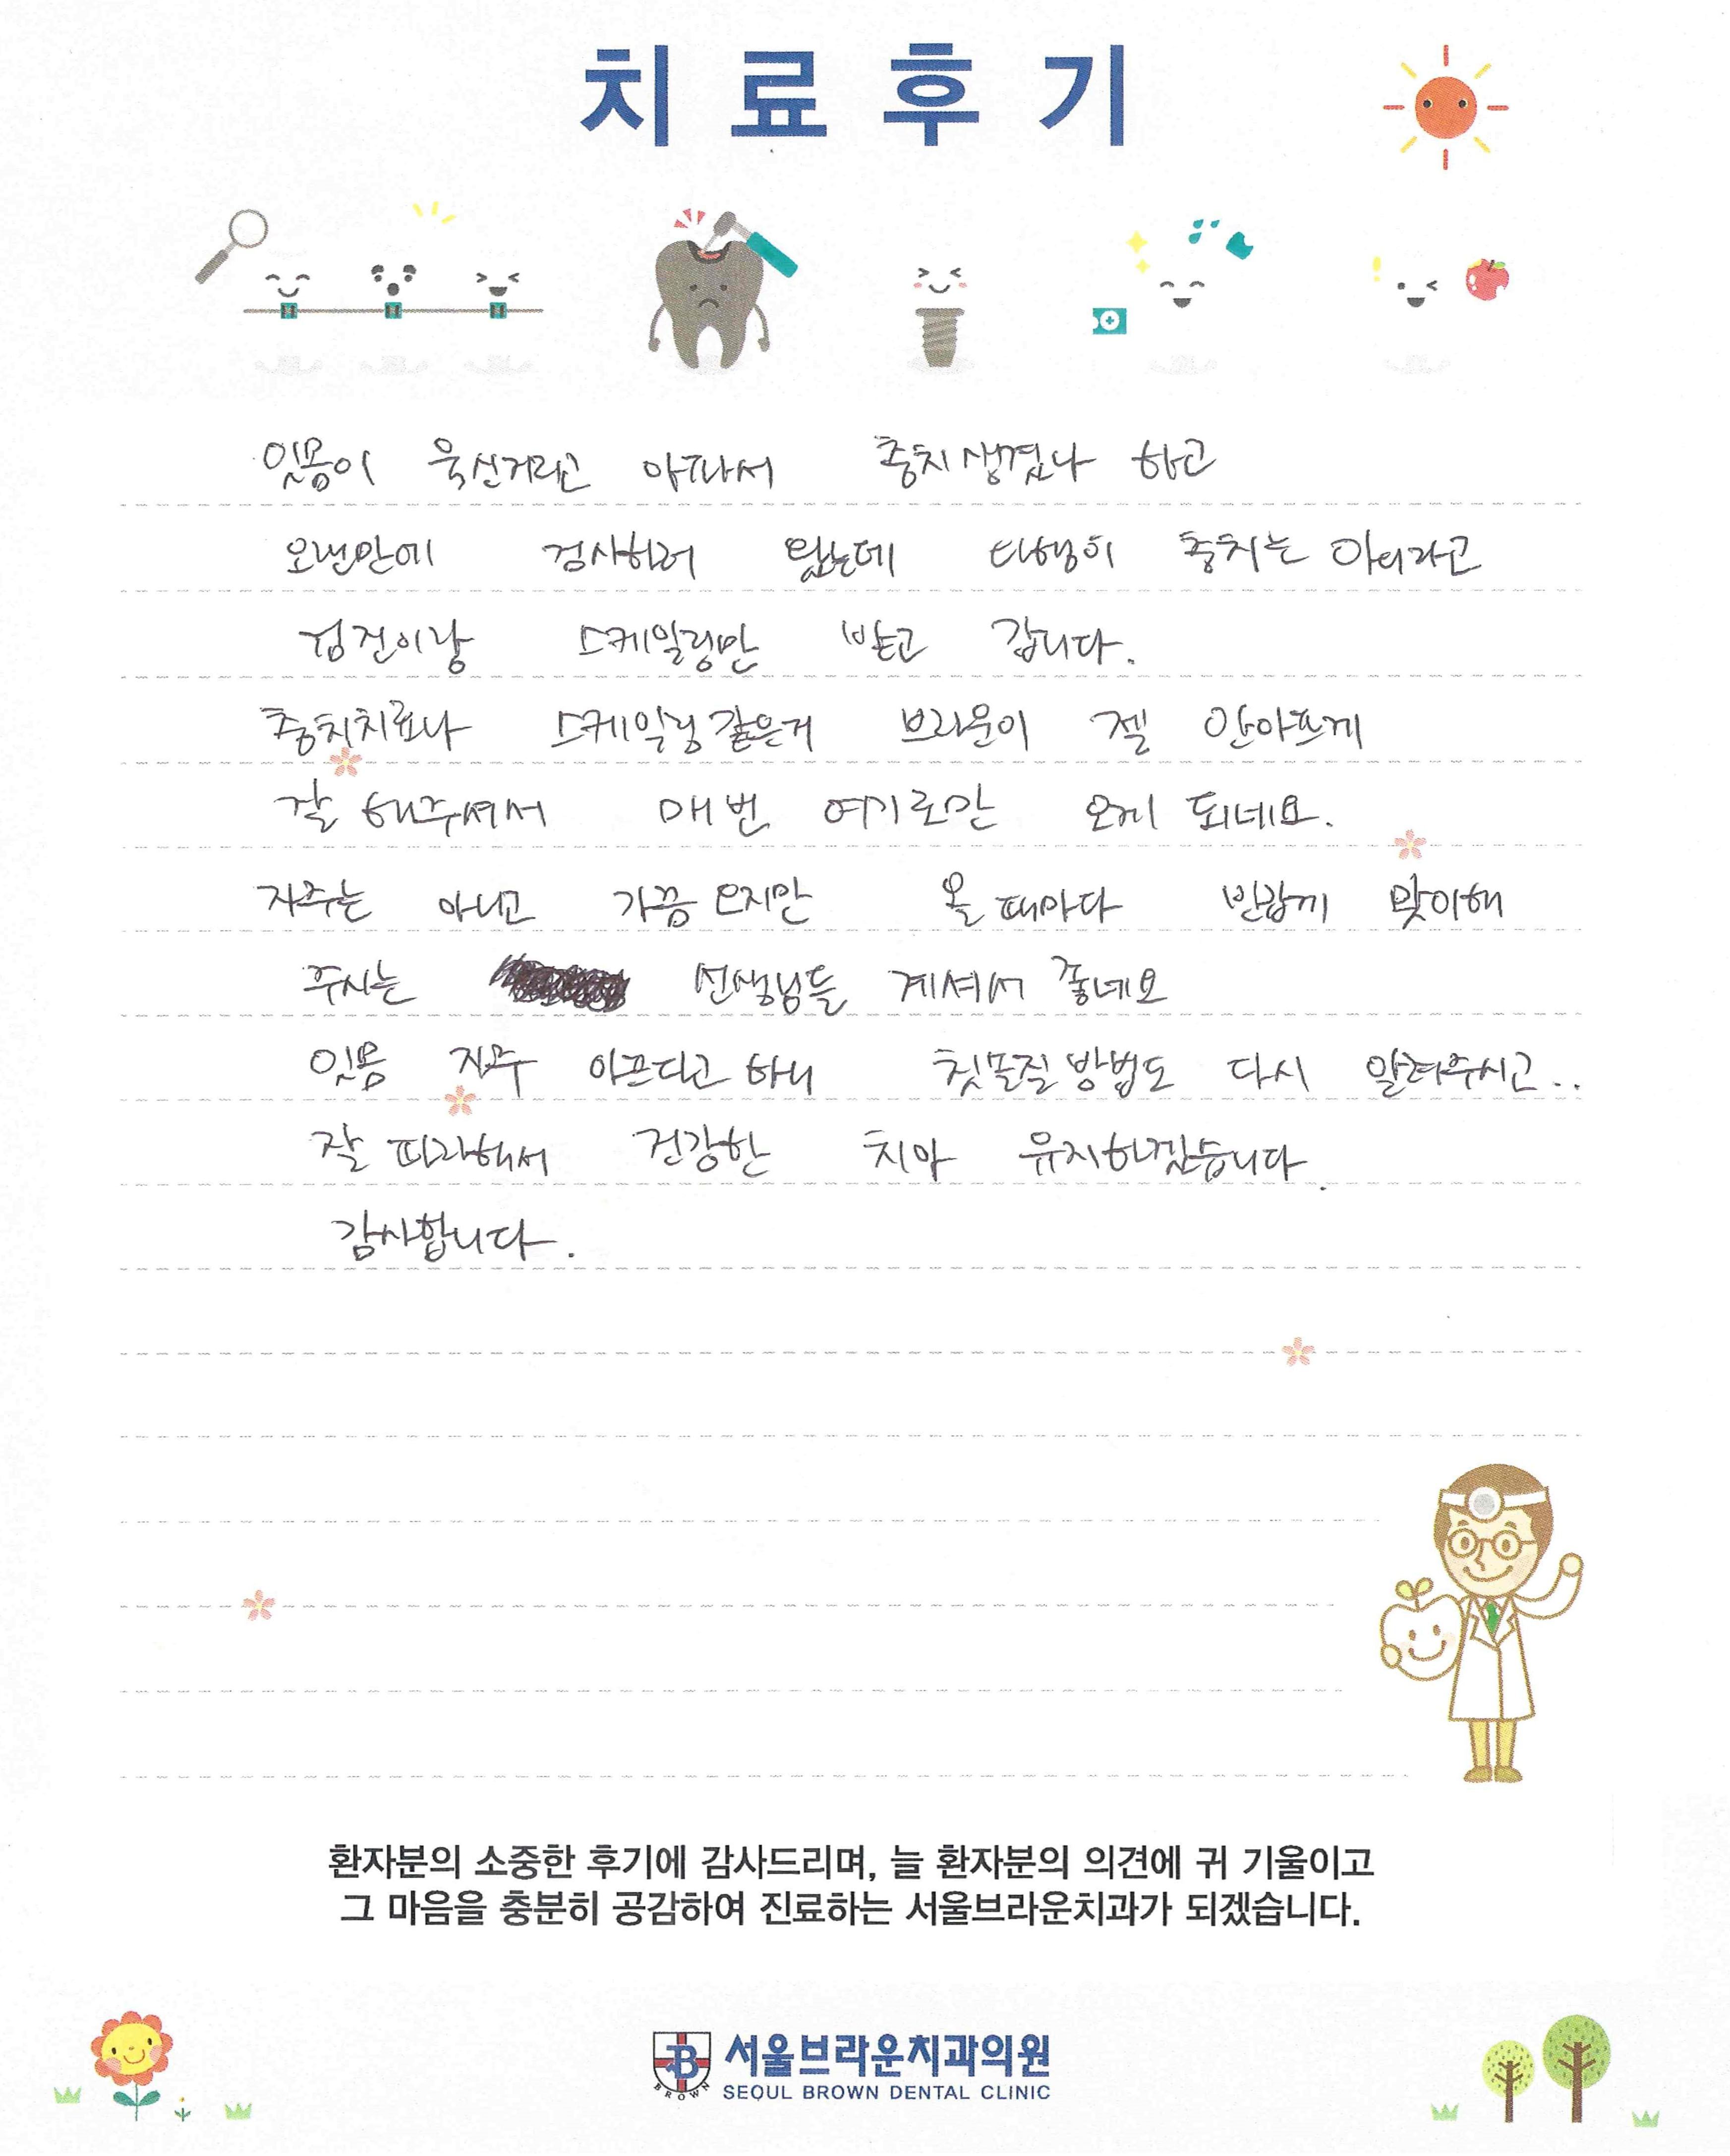 치료후기
잇몸이 욱신거리고 아파서 충치생겼나 하고
오랜만에 검사하러 왔는데 다행히 충치는 아니라고
검진이랑 스케일링만 받고 갑니다.
충치치료나 스케일링 같은거 브라운이 젤 안아프게
잘 해주셔서 매번 여기로만 오게 되네요.
자주는 아니고 가끔 오지만 올 때마다 반갑게 맞이해
주시는 선생님들 계셔서 좋네요
잇몸 자주 아프다고 하니 칫솔질 방법도 다시 알려주시고..
잘 따라해서 건강한 치아 유지하겠습니다.
감사합니다.
환자분의 소중한 후기에 감사드리며, 늘 환자분의 의견에 귀 기울이고
그 마음을 충분히 공감하여 진료하는 서울브라운치과가 되겠습니다.
B
BROWN
서울브라운치과의원
SEOUL BROWN DENTAL CLINIC